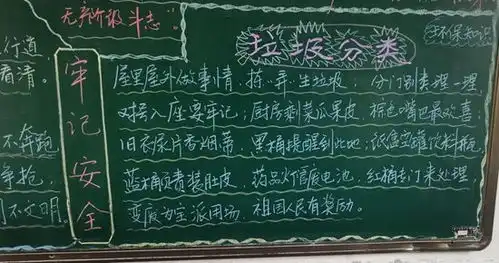 无产阶级斗志
行道
看清。
不奔跑
争抢,
不文明。
牢记安全
垃圾分类
环保知识
屋里屋外做事情,拣弄生垃圾;分门别类理一理
对号入座要牢记;厨房剩菜瓜果皮,棕色嘴巴最欢喜;
旧衣尿片香烟蒂,黑桶提醒到此地;纸盒空罐饮料瓶
蓝桶负责装肚皮,药品灯管废电池,红桶专门来处理
变废为宝派用场,祖国人民有奖励。